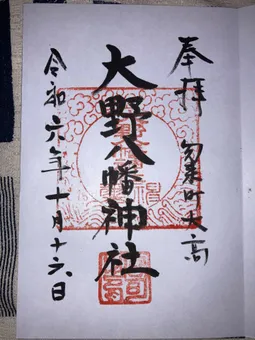 奉拝
勿来町大高
大野八幡神社
令和六年十月十六日